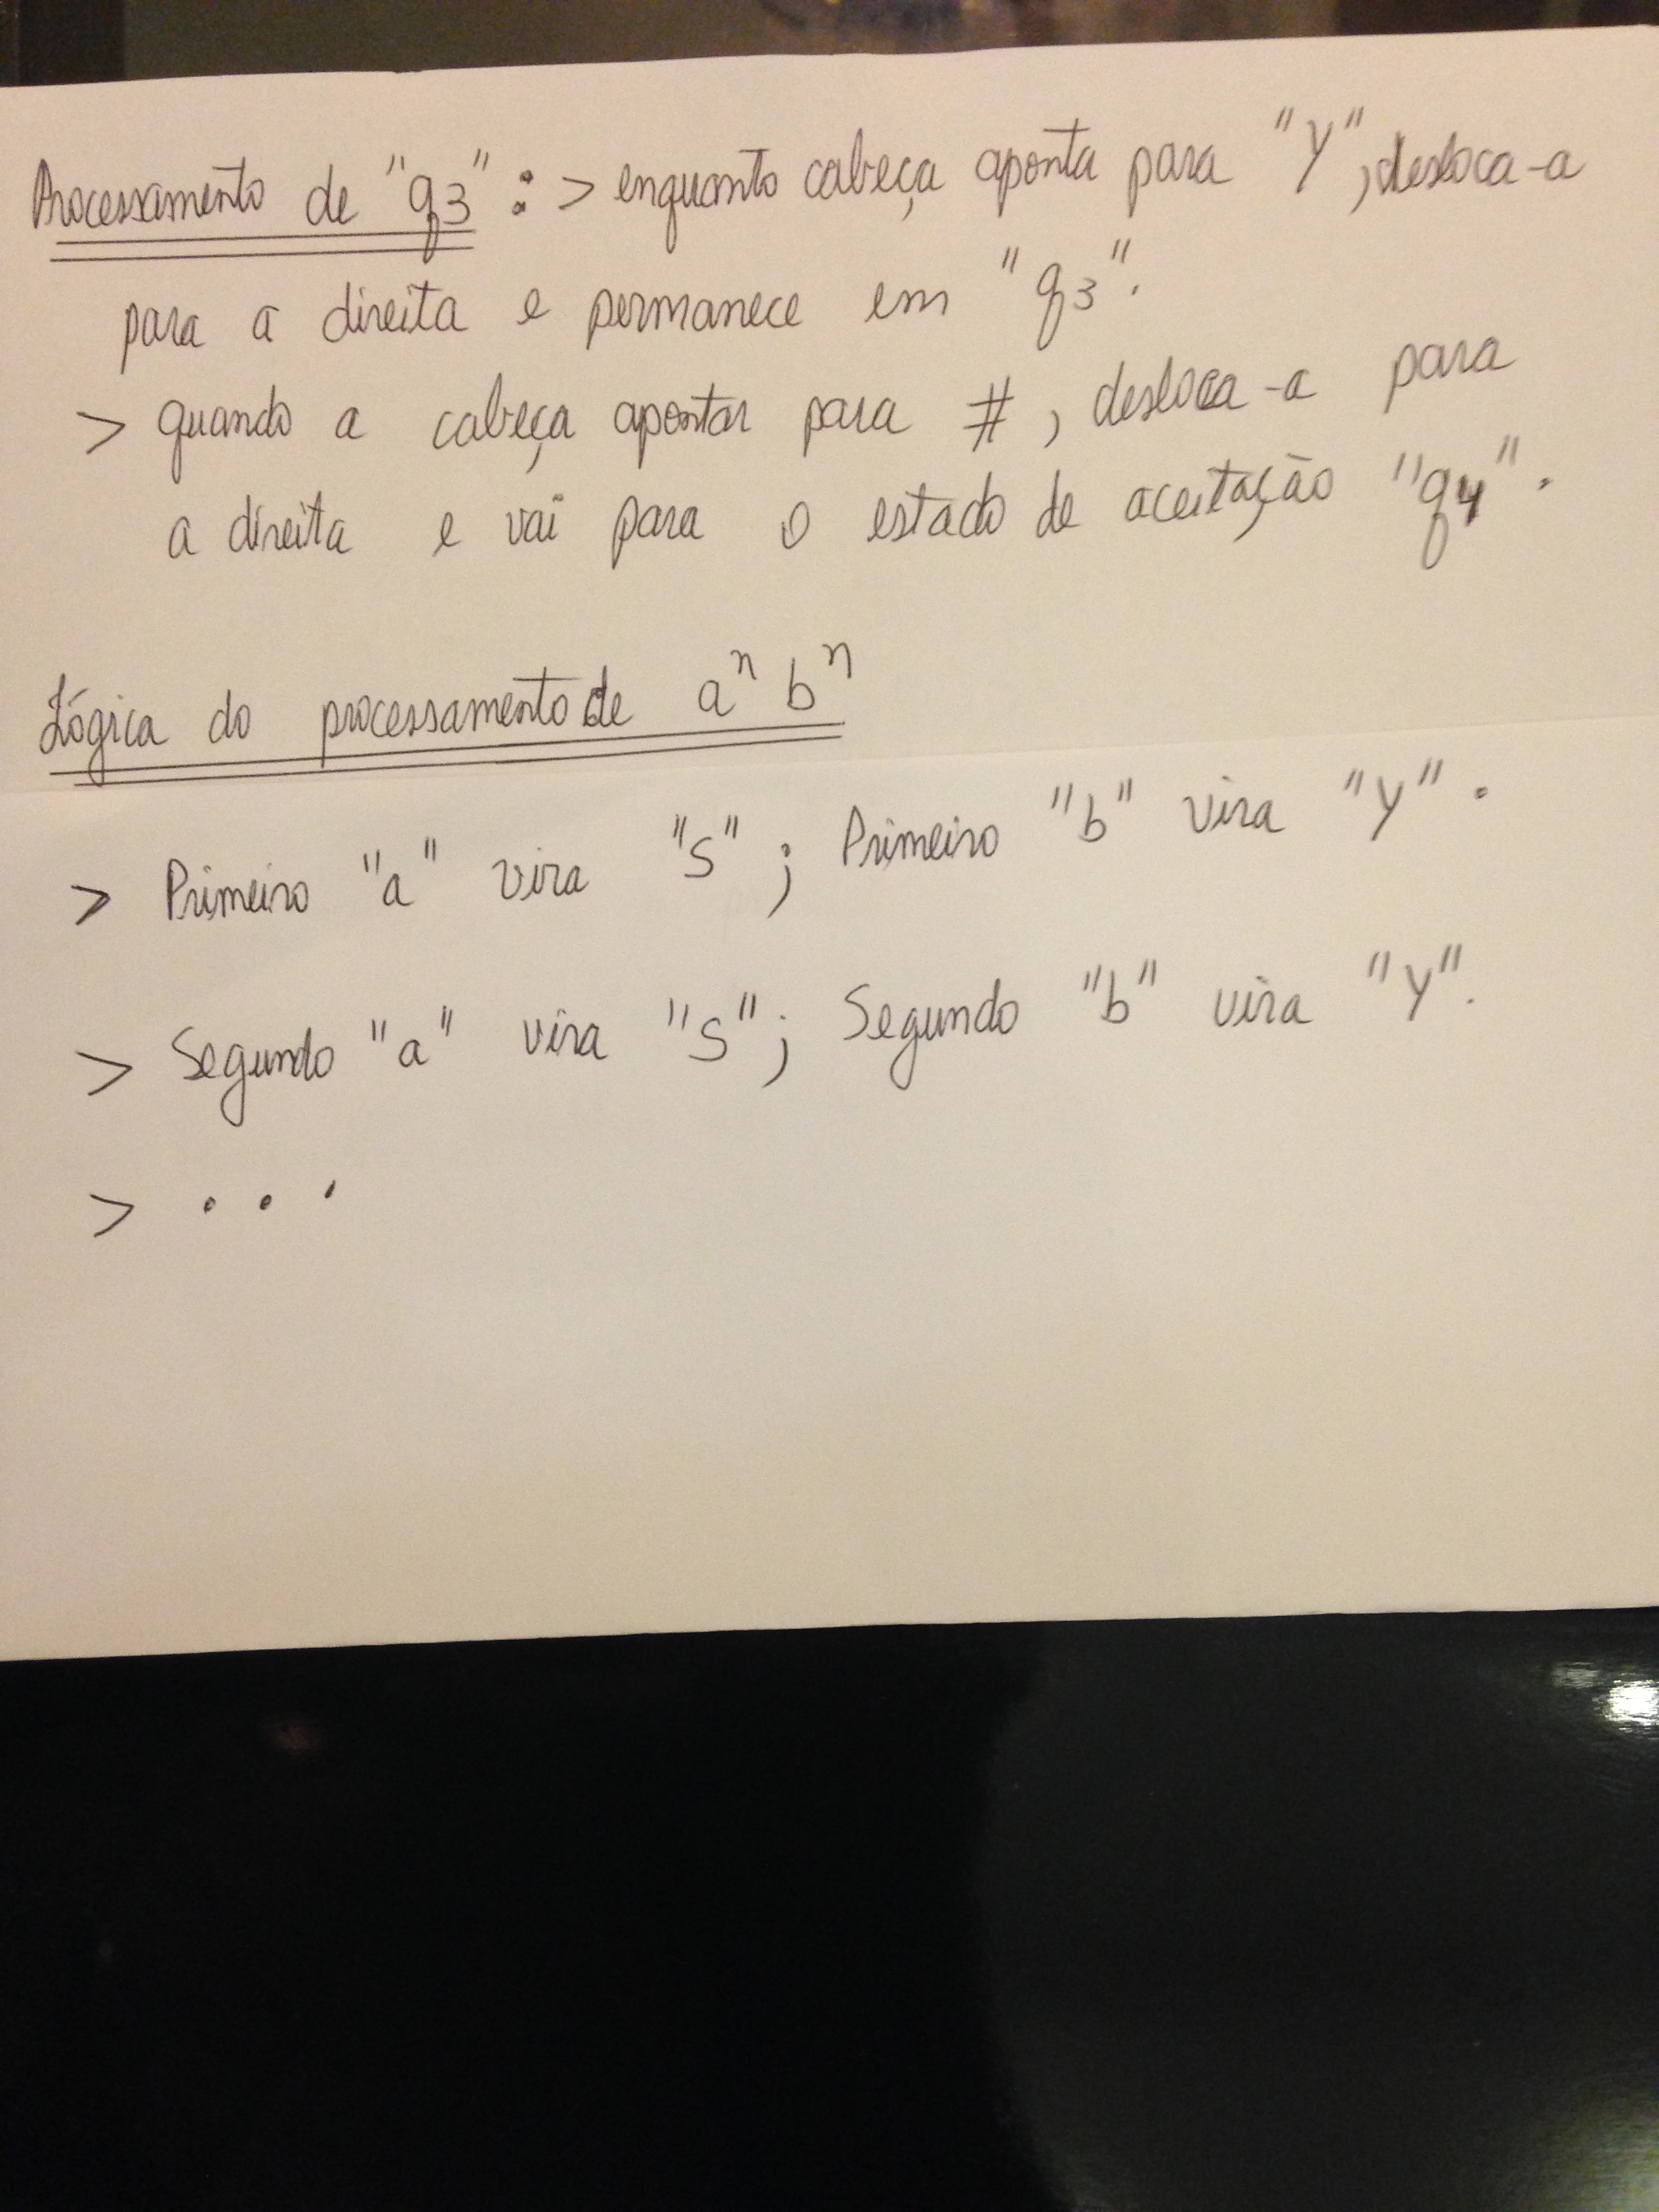 Processamento de "q3" : > enquanto cabeça aponta para "Y", desloca-a
para a direita e permanece em "q3".
> quando a cabeça apontar para #, desloca-a para
a direita e vai para o estado de aceitação "q4".
Lógica do processamento de aⁿ bⁿ
> Primeiro "a" vira "S" ; Primeiro "b" vira "Y".
> Segundo "a" vira "S" ; Segundo "b" vira "Y".
> ...